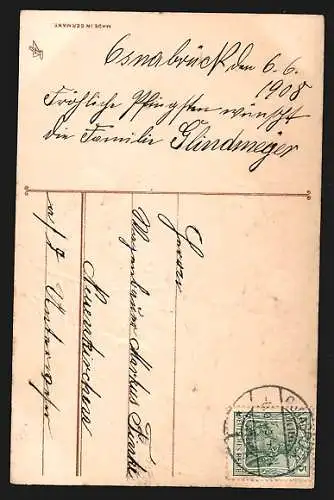 MADE IN GERMANY
Osnabrück den 6.6.
1908
Fröhliche Pfingsten wünscht
die Familie Glindmeyer
Herrn
Wagenbauer Markus
Neuenkirchen
a/d Unterweser
5